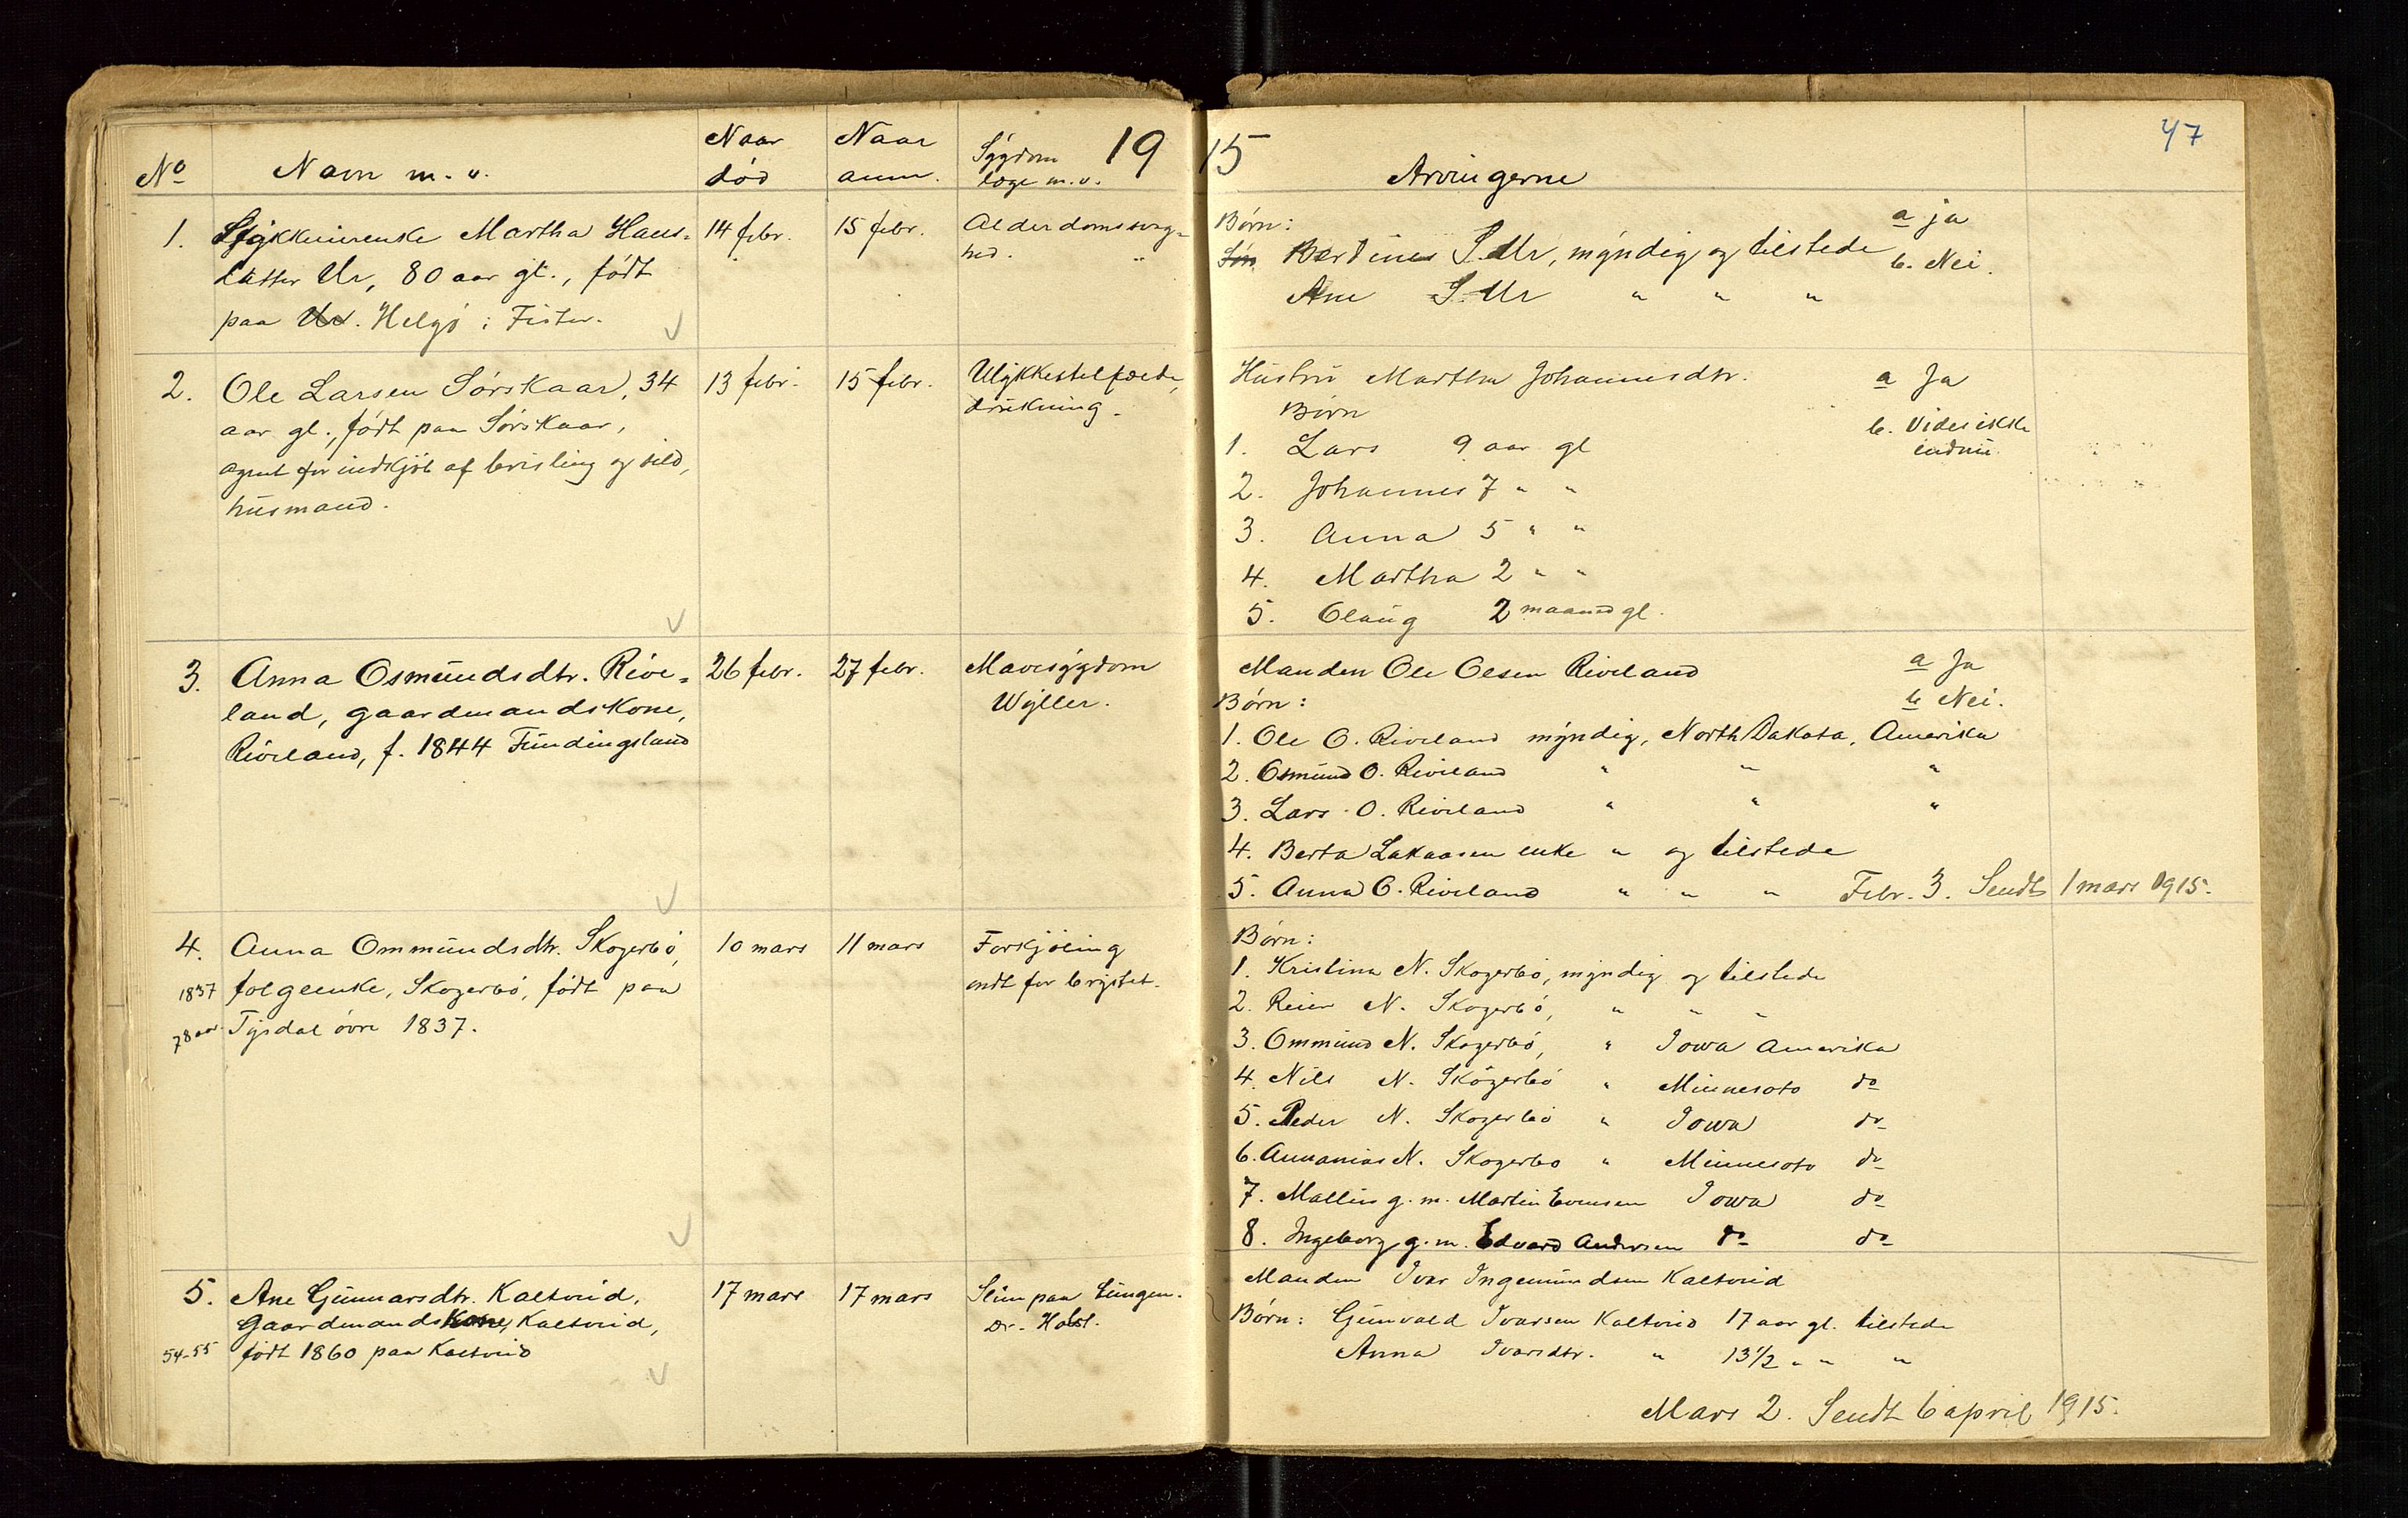 19 15
47
No
Navn m. v.
Naar død
Naar anm.
Sygdom læge m.v.
Arvingerne
1. Martha Hans-
datter Ur, 80 aar gl., født
paa Ur. Helgø i Fister.
14 febr.
15 febr.
Alderdomssvag-
hed.
Børn:
Søn Berdines S. Ur, myndig og tilstede
Ane S. Ur " " "
a ja
b. Nei.
2. Ole Larsen Sørskaar, 34
aar gl., født paa Sørskaar,
agent for indkjøb af brisling og sild,
husmand.
13 febr.
15 febr.
Ulykkestilfælde,
drukning.
Hustru Martha Johannesdtr.
Børn
1. Lars 9 aar gl
2. Johannes 7 " "
3. Anna 5 " "
4. Martha 2 " "
5. Olaug 2 maaned gl.
a Ja
b. Vides ikke
endnu
3. Anna Osmundsdtr. Rive-
land, gaardmandskone,
Riveland, f. 1844 Fundingsland
26 febr.
27 febr.
Mavesygdom
Wyller.
Manden Ole Olsen Riveland
Børn:
a Ja
b Nei.
1. Ole O. Riveland myndig, North Dakota, Amerika
2. Osmund O. Riveland " " "
3. Lars O. Riveland " " "
4. Berta Lakaasen enke " og tilstede
5. Anna O. Riveland " " "
Febr. 3. Sendt 1 mars 1915.
4. Anna Ommundsdtr. Skogerbø,
1837 folgeenke, Skogerbø, født paa
78 aar Tysdal øvre 1837.
10 mars
11 mars
Forkjøling
ondt for brystet.
Børn:
1. Kristina N. Skogerbø, myndig og tilstede
2. Reier N. Skogerbø, " " "
3. Ommund N. Skogerbø, " Iowa Amerika
4. Nils N. Skogerbø " Minnesoto do
5. Peder N. Skogerbø " Iowa do
6. Annanias N. Skogerbø " Minnesoto do
7. Mallin g. m. Martin Evensen Iowa do
8. Ingeborg g. m. Edvard Andersen do do
5. Ane Gunnarsdtr. Kaltveid,
Gaardmandskone, Kaltveid,
54-55 født 1860 paa Kaltveid
17 mars
17 mars
Slim paa lungen.
Dr. Holst.
Manden Ivar Ingemundsen Kaltveid
Børn: Gunvald Ivarsen Kaltveid 17 aar gl. tilstede
Anna Ivarsdtr. " 13 1/2 " " "
Mars 2. Sendt 6 april 1915.